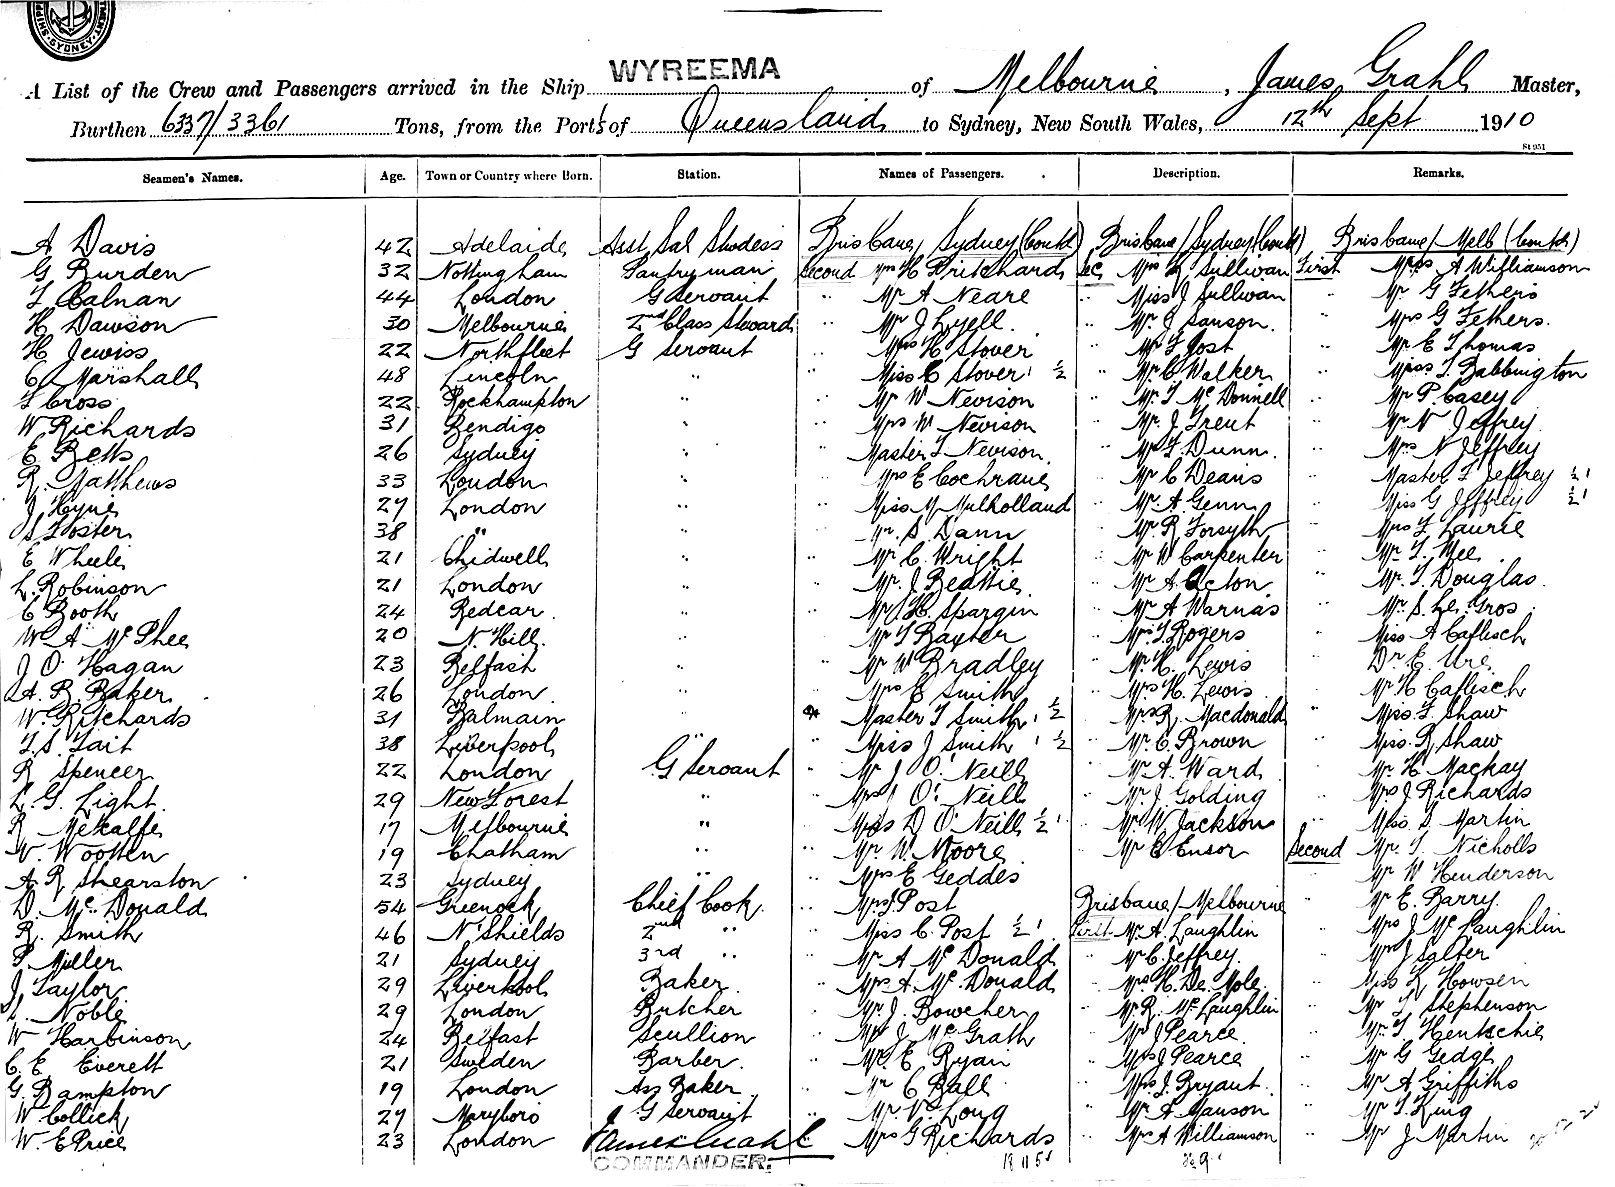 SYDNEY
WYREEMA
A List of the Crew and Passengers arrived in the Ship WYREEMA of Melbourne, James Grahl Master,
Burthen 6337/3361 Tons, from the Port s of Queensland to Sydney, New South Wales, 12th Sept 1910
St 951
Seamen's Names. Age. Town or Country where Born. Station. Names of Passengers. Description. Remarks.
A Davis 42 Adelaide Asst Sal Stwdess Brisbane/Sydney (Contd) Brisbane/Sydney (Contd) Brisbane/Melb (Contd)
G Burden 32 Nottingham Pantryman Second Mrs H Pritchard Sec Mrs L. Sullivan First Mrs A Williamson
T Calnan 44 London G Servant " Mr A Neare " Miss J Sullivan " Mr G Fethers
H Dawson 30 Melbourne 2nd Class Steward " Mr J Lyell " Mr J Sanson " Mrs G Fethers
H Jewiss 22 Northfleet G Servant " Mrs H Stover " Mr F Jost " Mr E Thomas
C Marshall 48 Lincoln " " Miss C Stover 1 ½ " Mr C Walker " Miss T. Babbington
T Cross 22 Rockhampton " " Mr W Nevison " Mr T McDonnell " Mr P Casey
W Richards 31 Bendigo " " Mrs W Nevison " Mr J Trent " Mr N Jeffrey
E Betts 26 Sydney " " Master T Nevison " Mr F Dunn " Mrs N Jeffrey
R. Matthews 33 London " " Mrs E Cochrane " Mr C Deans " Master F Jeffrey ½ 1
J Hyne 27 London " " Miss M Mulholland " Mr A Genn " Miss G Jeffrey ½ 1
S Foster 38 " " " Mr S Dann " Mr R Forsyth " Mrs F Laurie
E Wheeler 21 Chidwell " " Mr C. Wright " Mr W Carpenter " Mr T. Mee
L. Robinson 21 London " " Mr J Beattie " Mr A Acton " Mr T. Douglas
C Booth 24 Redcar " " Mr H Spargin " Mr A Warnas " Mr S. Le Gros
W A McPhee 20 N. Hill " " Mr T Baxter " Mr T. Rogers " Miss A Caflisch
J O'Hagan 23 Belfast " " Mr W Bradley " Mr H. Lewis " Dr E Ure
A. R Baker 26 London " " Mrs E Smith " Mrs H. Lewis " Mr H Caflisch
W. Ritchards 31 Balmain " " Master T Smith 1 ½ " Mrs R. Macdonald " Miss F. Shaw
T.S. Tait 38 Liverpool " " Miss J Smith 1 ½ " Mr C. Brown " Miss R Shaw
R Spencer 22 London G Servant " Mr J O'Neill " Mr A. Ward " Mr H. Mackay
L. G. Light 29 New Forest " " Mrs J O'Neill " Mr J. Golding " Mrs J Richards
R Metcalfe 17 Melbourne " " Miss D O'Neill ½ 1 " Mr W Jackson " Miss D Martin
W Wootten 19 Chatham " " Mr W. Moore " Mr E Ensor Second Mr T. Nicholls
A R Shearston 23 Sydney " " Mrs E Geddes " Mr W Henderson
D. McDonald 54 Greenock Chief Cook " Mrs J Post Brisbane/Melbourne " Mr E. Barry
R. Smith 46 N. Shields 2nd " " Miss C. Post ½ 1 First Mr A. Laughlin " Mrs J McLaughlin
P Miller 21 Sydney 3rd " " Mr A McDonald " Mr C. Jeffrey " Mrs J Salter
J Taylor 29 Liverpool Baker " Mrs A. McDonald " Mrs H. De Mole " Miss L Howsen
J. Noble 29 London Butcher " Mr J. Bowcher " Mr R. McLaughlin " Mr T Stephenson
W Harbinson 24 Belfast Scullion " Mr J. McGrath " Mr J Pearce " Mr T Hentschie
C. E Everett 21 Sweden Barber " Mr E Ryan " Mrs J Pearce " Mr G Gedge
G. Bampton 19 London Ass Baker " Mr C Ball " Mrs J. Bryant " Mr A Griffiths
W Collick 27 Maryboro G Servant " Mr V. Long " Mr A Manson " Mr T. King
W. E Price 23 London James Grahl " Mrs G Richards " Mr A Williamson " Mr J Martin
COMMANDER.